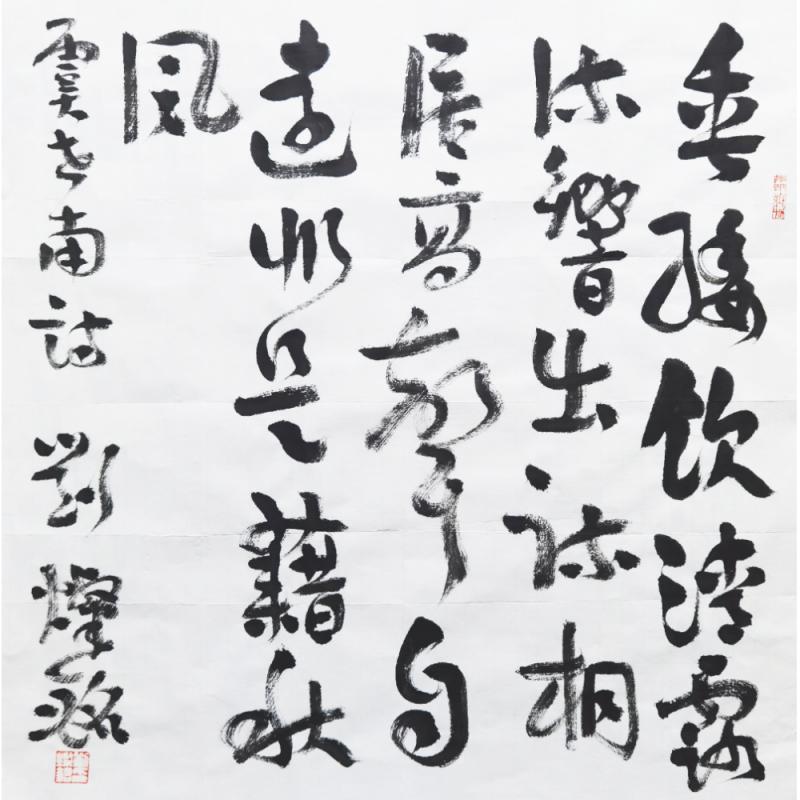 垂緌飲清露
流響出疏桐
居高聲自
遠非是藉秋
風
虞世南詩 劉燦銘